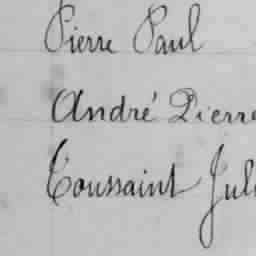 Pierre Paul
André Pierre
Toussaint Jul